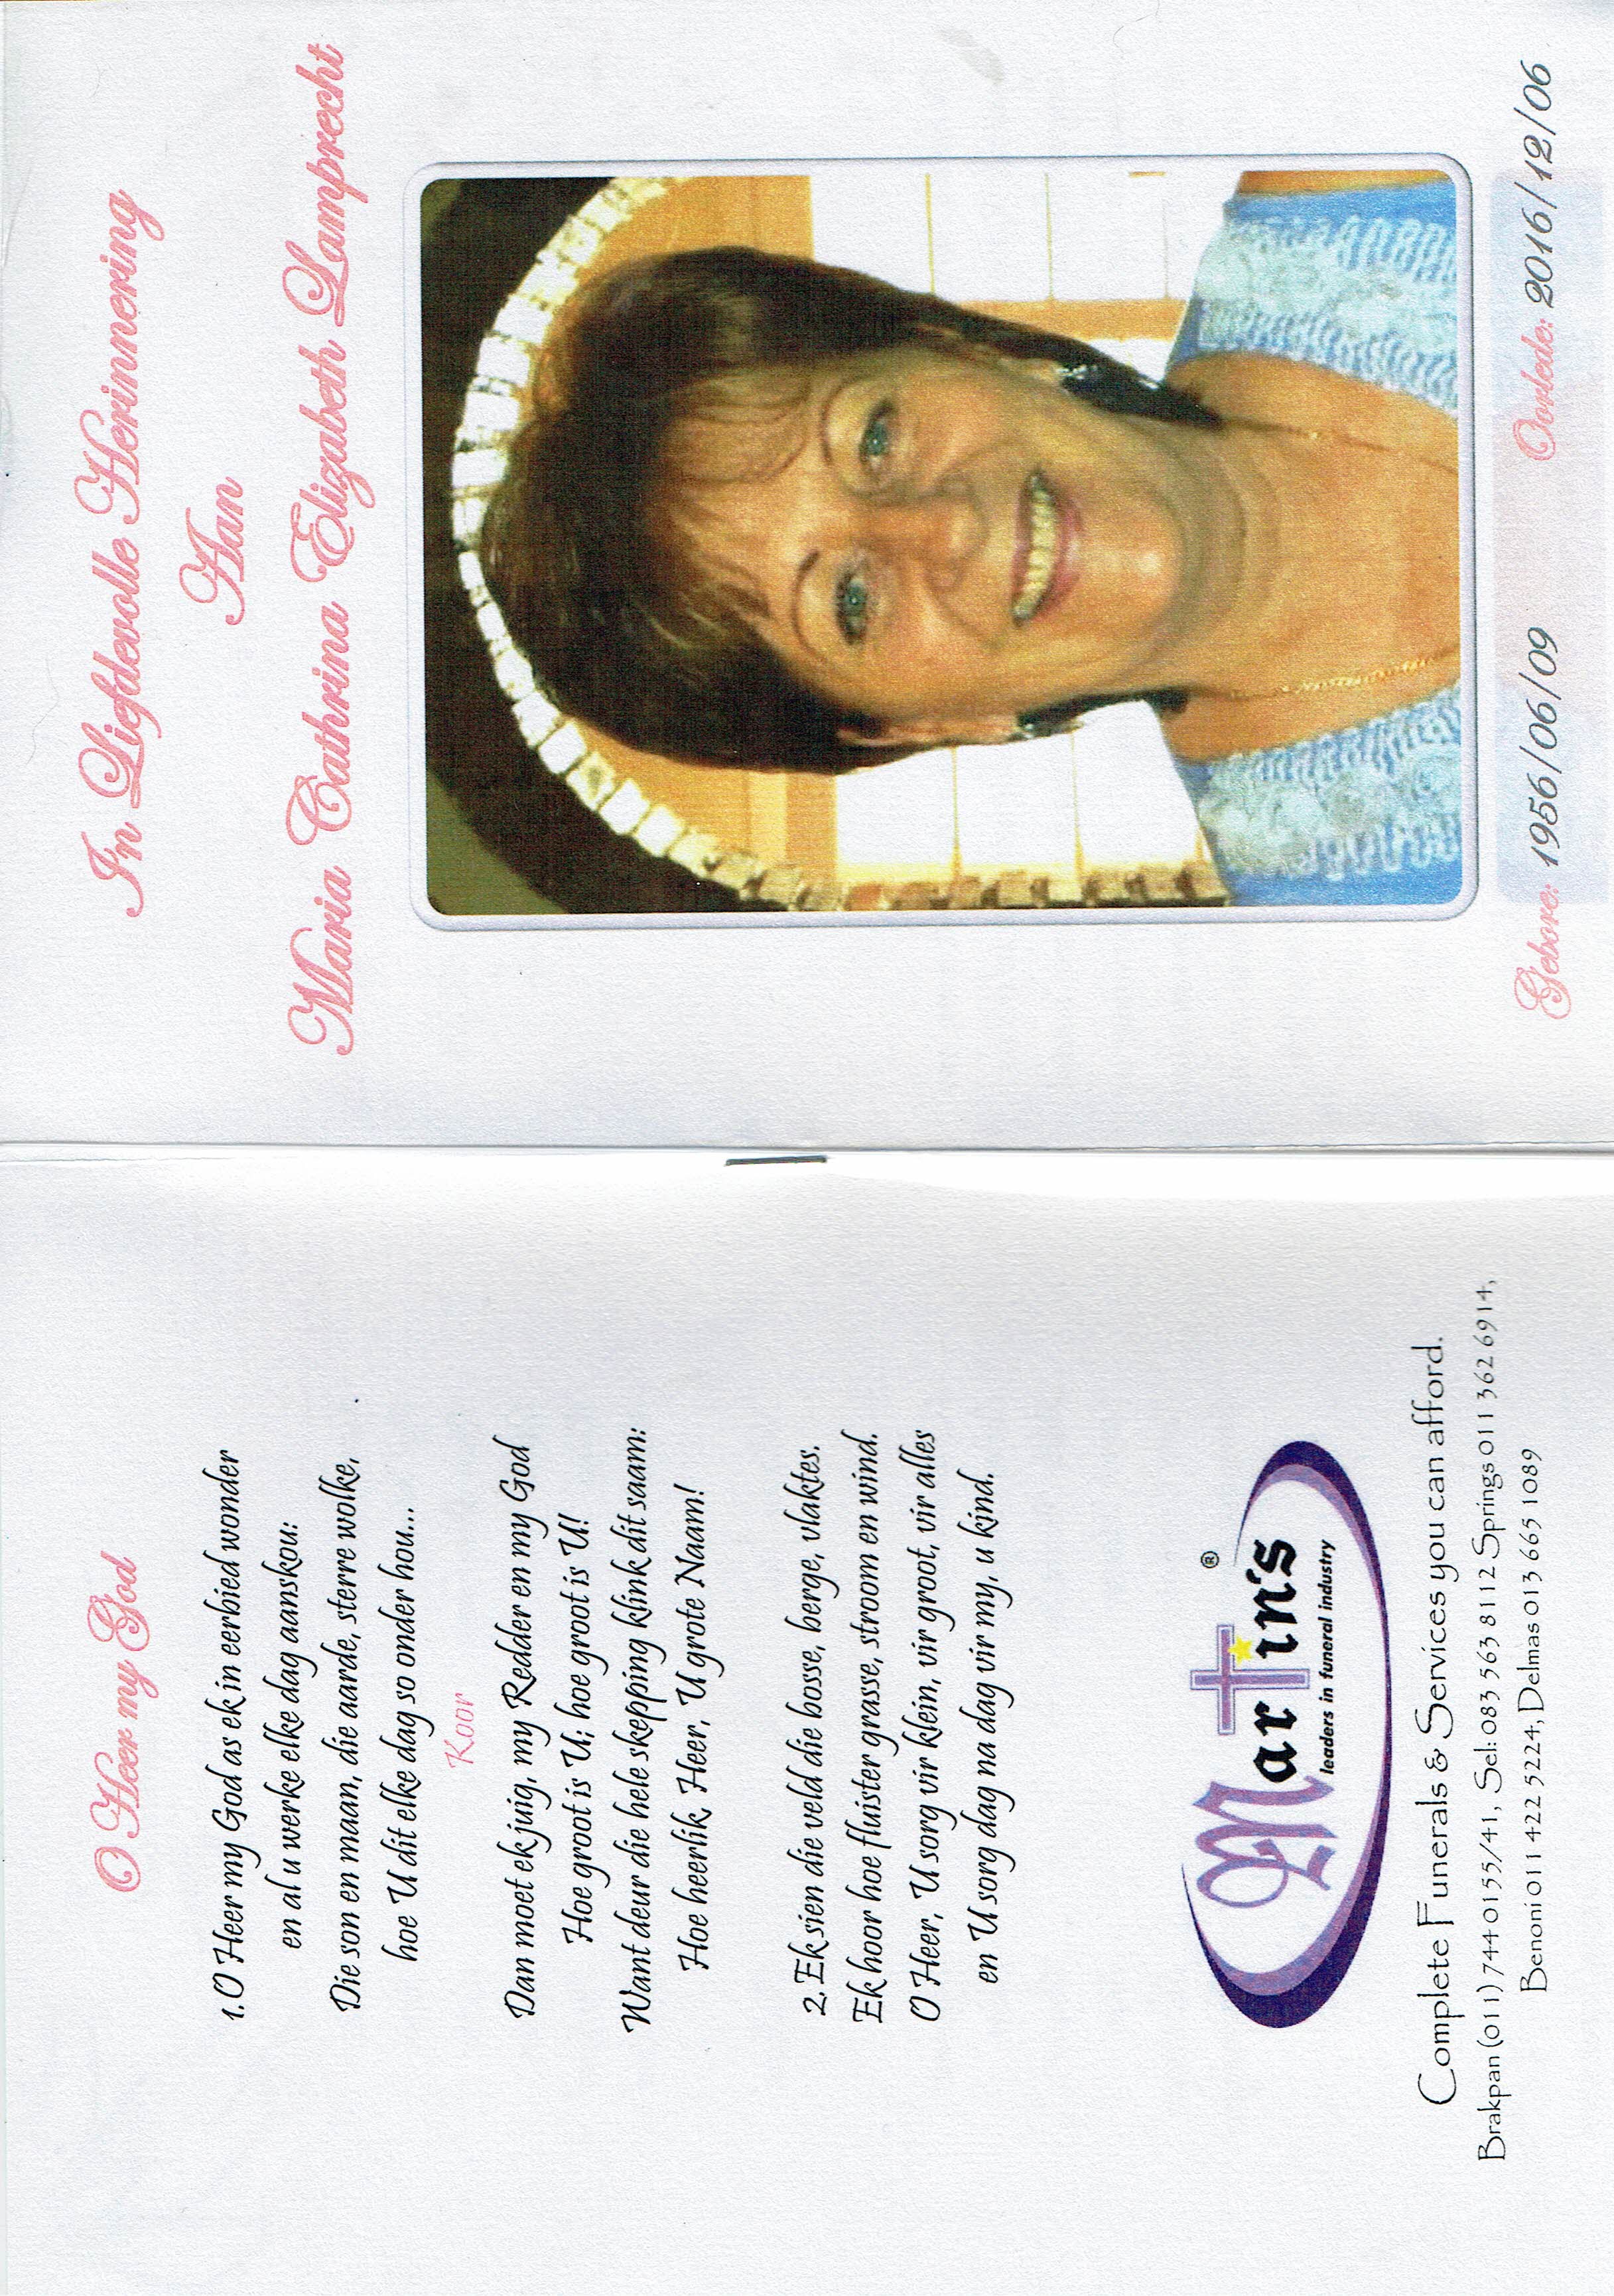 O Heer my God
1.O Heer my God as ek in eerbied wonder
en al u werke elke dag aanskou:
Die son en maan, die aarde, sterre wolke,
hoe U dit elke dag so onder hou...
Koor
Dan moet ek juig, my Redder en my God
Hoe groot is U; hoe groot is U!
Want deur die hele skepping klink dit saam:
Hoe heerlik, Heer, U grote Naam!
2.Ek sien die veld die bosse, berge, vlaktes.
Ek hoor hoe fluister grasse, stroom en wind.
O Heer, U sorg vir klein, vir groot, vir alles
en U sorg dag na dag vir my, u kind.
Martin's ®
leaders in funeral industry
Complete Funerals & Services you can afford.
Brakpan (011) 744 0155/41, Sel: 083 563 8112 Springs 011 362 6914,
Benoni 011 422 5224, Delmas 013 665 1089
In Liefdevolle Herinnering
Aan
Maria Cathrina Elizabeth Lamprecht
Gebore: 1956/06/09 Oorlede: 2016/12/06